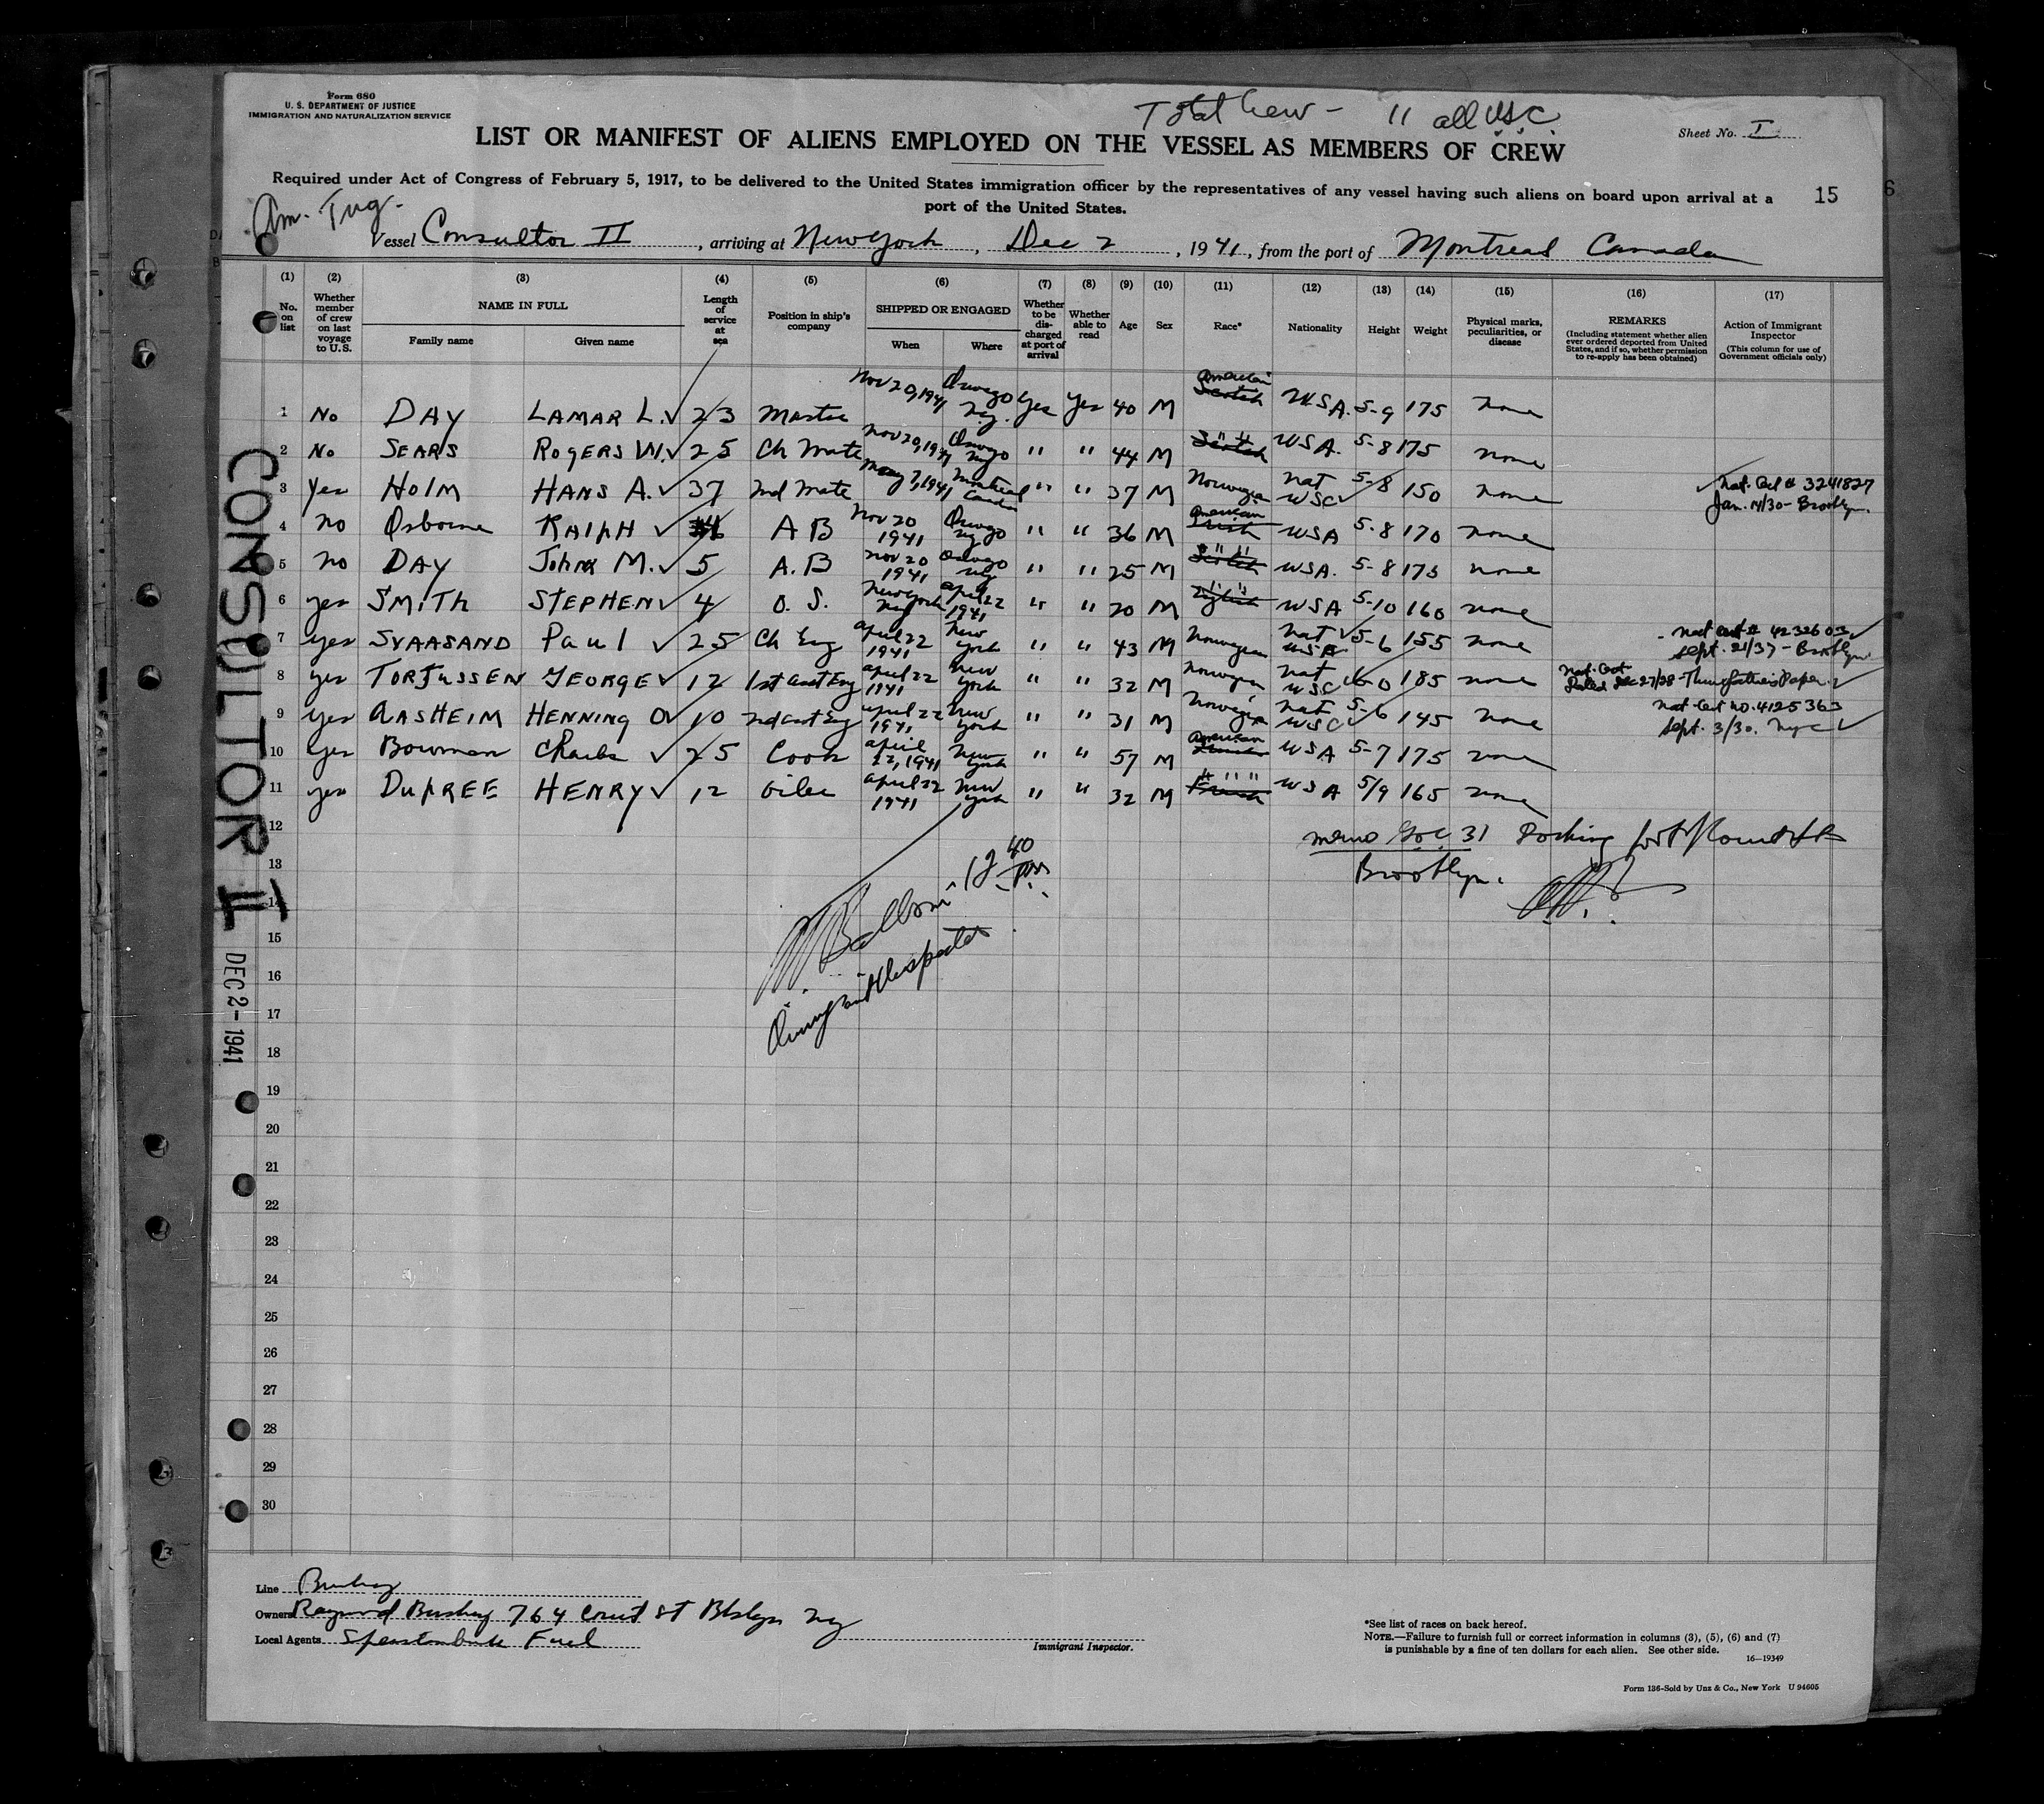 Form 680
U. S. DEPARTMENT OF JUSTICE
IMMIGRATION AND NATURALIZATION SERVICE
Total Crew - 11 all U.S.C.
LIST OR MANIFEST OF ALIENS EMPLOYED ON THE VESSEL AS MEMBERS OF CREW
Sheet No. I
Required under Act of Congress of February 5, 1917, to be delivered to the United States immigration officer by the representatives of any vessel having such aliens on board upon arrival at a
port of the United States.
15
6
Am. Tug.
Vessel Consultor II, arriving at New York, Dec 2, 1941, from the port of Montreal Canada
(1) (2) (3) (4) (5) (6) (7) (8) (9) (10) (11) (12) (13) (14) (15) (16) (17)
No. on list
Whether member of crew on last voyage to U.S.
NAME IN FULL
Family name
Given name
Length of service at sea
Position in ship's company
SHIPPED OR ENGAGED
When
Where
Whether to be discharged at port of arrival
Whether able to read
Age
Sex
Race*
Nationality
Height
Weight
Physical marks, peculiarities, or disease
REMARKS
(Including statement whether alien ever ordered deported from United States, and if so, whether permission to re-apply has been obtained)
Action of Immigrant Inspector
(This column for use of Government officials only)
1 No DAY LAMAR L. 23 Master Nov 20, 1941 Oswego N.Y. Yes Yes 40 M American Scotch U.S.A. 5-9 175 none
2 No SEARS ROGERS W. 25 Ch Mate Nov 20, 1941 Oswego NY " " 44 M " " Scotch USA. 5-8 175 none
3 Yes HOLM HANS A. 37 2nd Mate May 7, 1941 Montreal Canada " " 37 M Norwegian Nat USC 5-8 150 none Nat. Cert # 3241827 Jan. 14/30 - Brooklyn.
4 no Osborne RALPH A B Nov 20 1941 Oswego NY " " 36 M American Irish USA 5-8 170 none
5 no DAY John M. 5 A.B Nov 20 1941 Oswego NY " " 25 M " " Scotch USA. 5-8 175 none
6 yes SMITH STEPHEN 4 O. S. New York NY April 22 1941 " " 20 M " " English USA 5-10 160 none
7 yes SVAASAND Paul 25 Ch Eng April 22 1941 New York " " 43 M Norwegian Nat USA 5-6 155 none Nat Cert # 4232603 Sept. 21/37 - Brooklyn
8 yes TORJUSSEN GEORGE 12 1st Asst Eng April 22 1941 New York " " 32 M Norwegian Nat USC 6-0 185 none Nat. Cert Dated Dec 27/28 - Thru father's Paper.
9 yes AASHEIM HENNING O 10 2nd Asst Eng April 22 1941 New York " " 31 M Norwegian Nat USC 5-6 145 none Nat Cert no. 4125363 Sept. 3/30. NYC
10 yes Bowman Charles 25 Cook April 22, 1941 New York " " 57 M American USA 5-7 175 none
11 yes DUPREE HENRY 12 Oiler April 22 1941 New York " " 32 M " " " French USA 5/9 165 none
12
13
14
15
16
17
18
19
20
21
22
23
24
25
26
27
28
29
30
31 Docking foot of Court St
Brooklyn.
12 40 PM
Immigrant Inspector
CONSULTOR II
DEC 2 - 1941
Line Bushey
Owners Raymond Bushey 764 Court St Bklyn NY
Local Agents Fuel
Immigrant Inspector.
*See list of races on back hereof.
NOTE.—Failure to furnish full or correct information in columns (3), (5), (6) and (7)
is punishable by a fine of ten dollars for each alien. See other side.
16—19349
Form 136-Sold by Unz & Co., New York U 94605